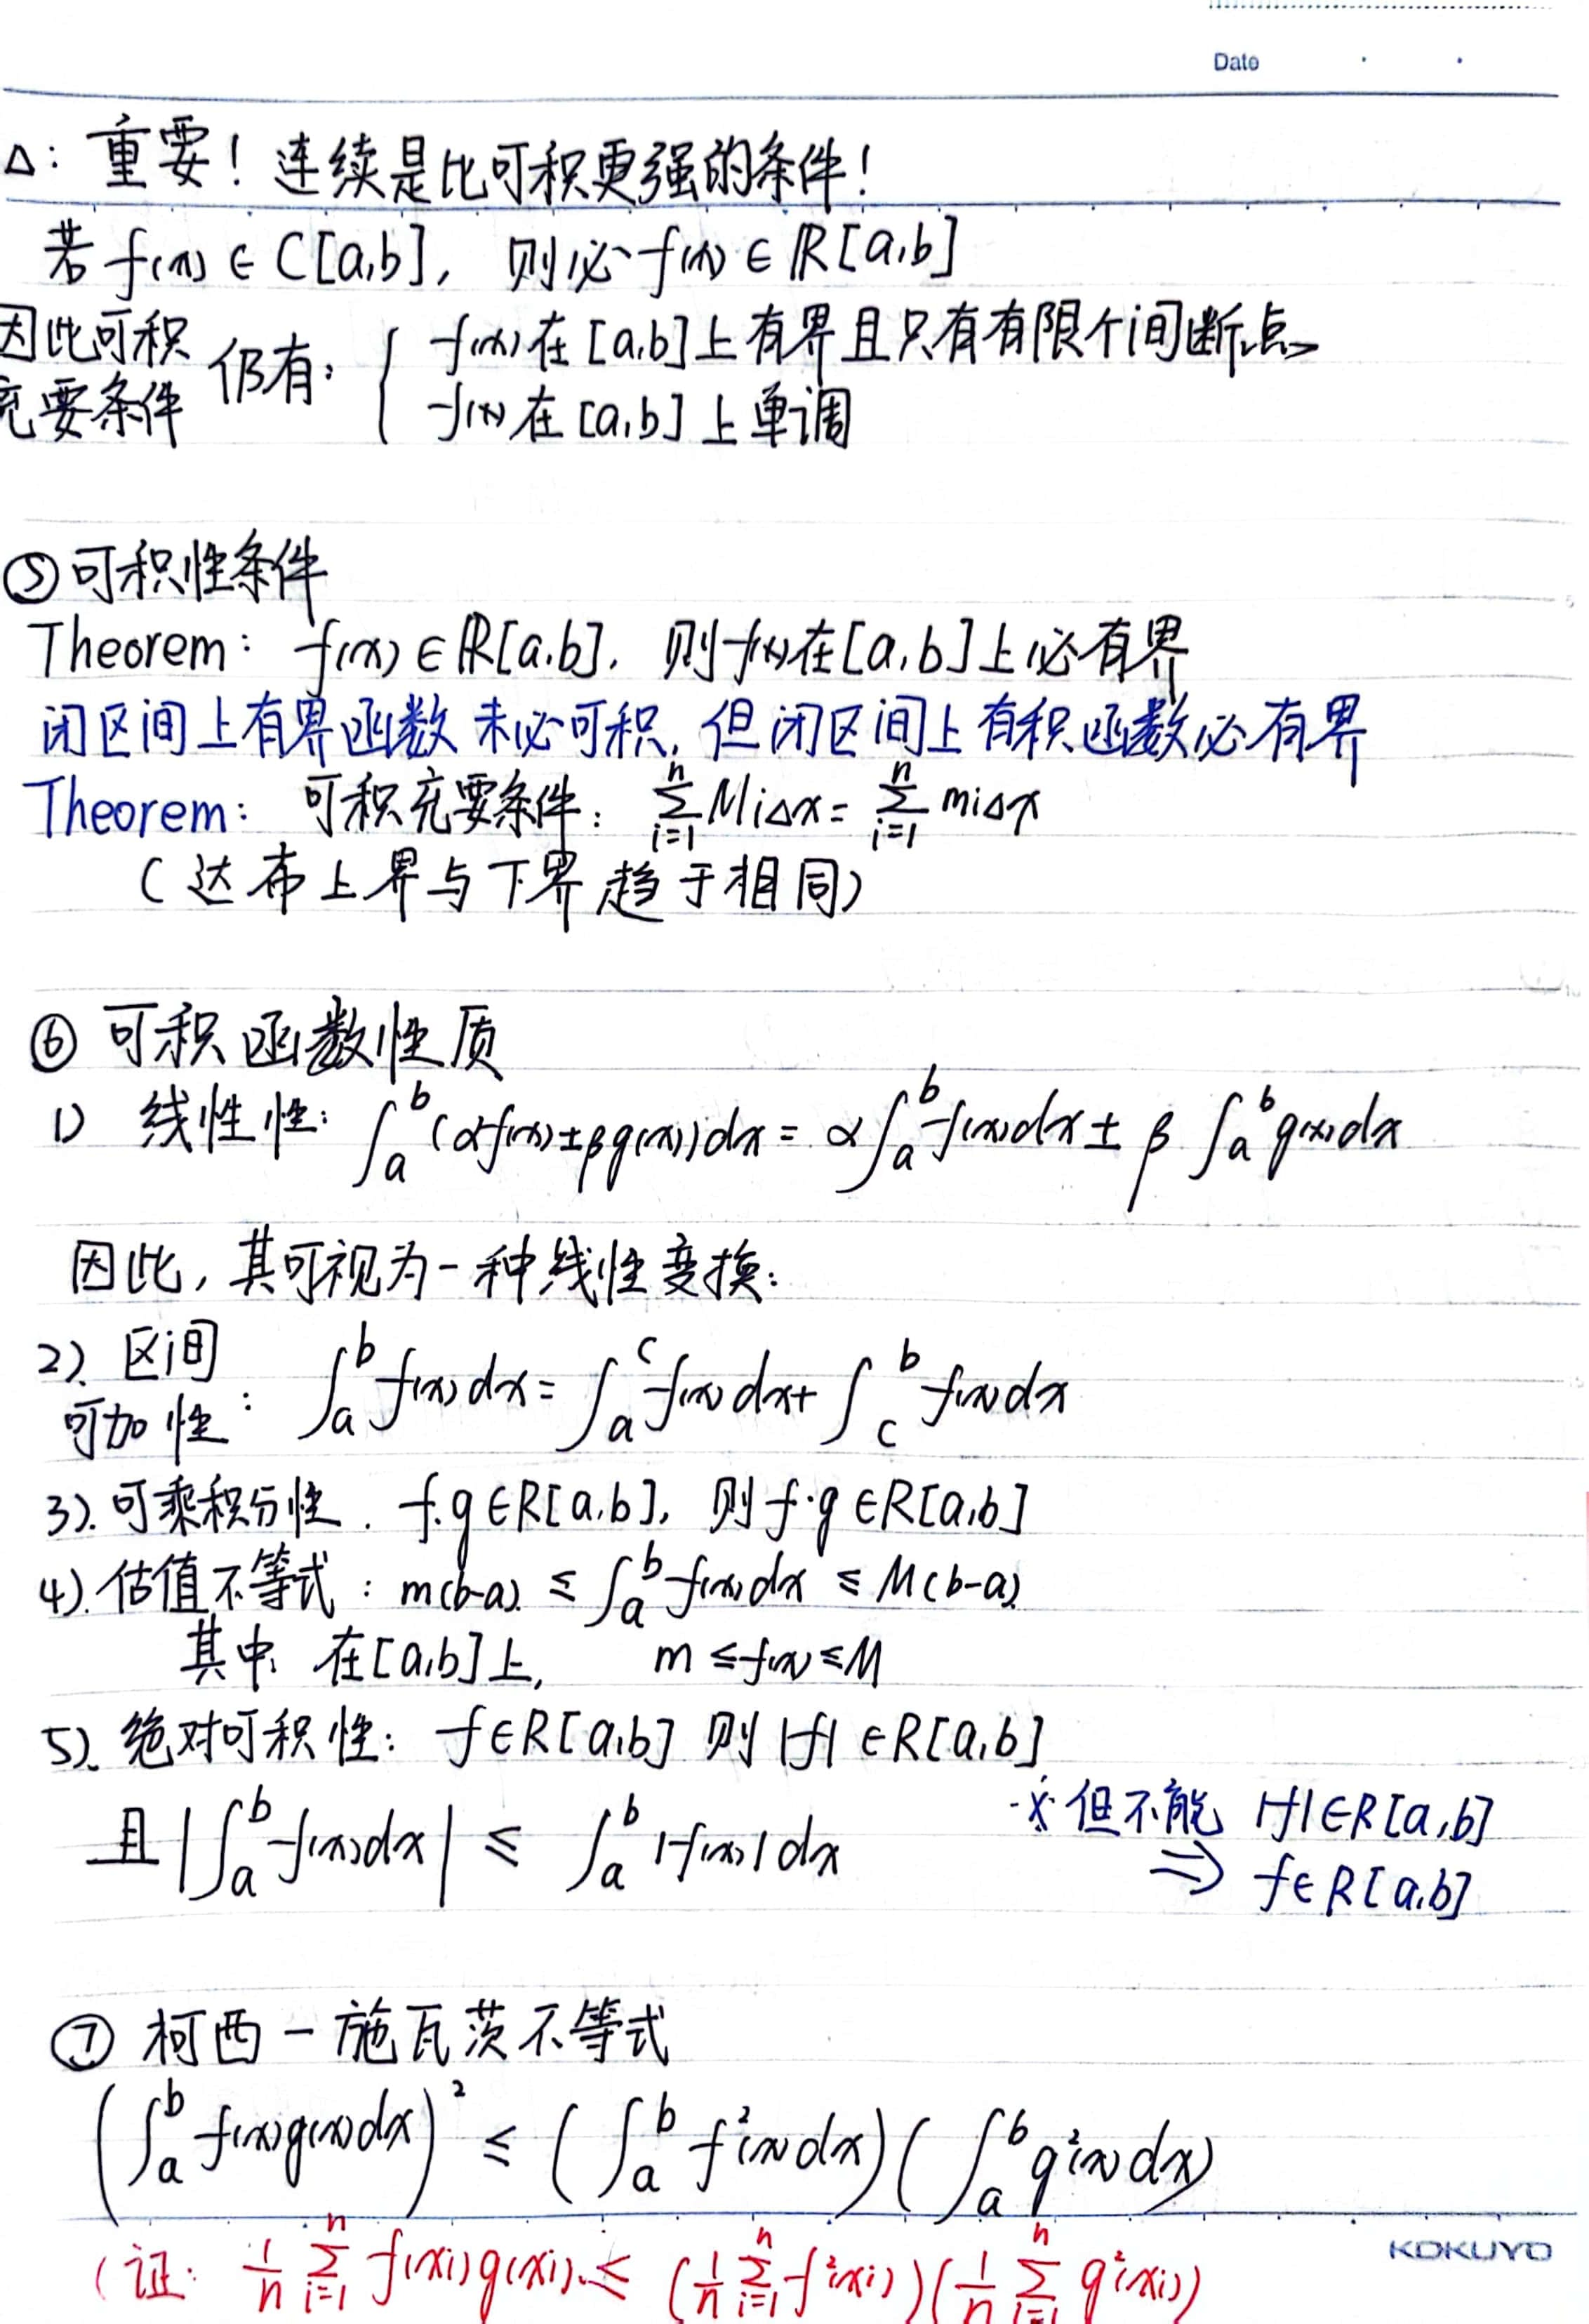 Date
△: 重要！连续是比可积更强的条件！
若 f(x) ∈ C[a,b], 则必 f(x) ∈ ℝ[a,b]
因此可积充要条件 仍有: { f(x)在[a,b]上有界且只有有限个间断点
f(x)在[a,b]上单调
⑤可积性条件
Theorem: f(x) ∈ ℝ[a,b], 则f(x)在[a,b]上必有界
闭区间上有界函数未必可积, 但闭区间上有积函数必有界
Theorem: 可积充要条件: ∑_{i=1}^{n} MiΔx = ∑_{i=1}^{n} miΔx
(达布上界与下界趋于相同)
⑥ 可积函数性质
1) 线性性: ∫_a^b (αf(x)±βg(x))dx = α∫_a^b f(x)dx ± β∫_a^b g(x)dx
因此, 其可视为一种线性变换:
2). 区间可加性: ∫_a^b f(x)dx = ∫_a^c f(x)dx + ∫_c^b f(x)dx
3). 可乘积分性. f.g ∈R[a,b], 则 f·g ∈R[a,b]
4). 估值不等式: m(b-a) ≤ ∫_a^b f(x)dx ≤ M(b-a)
其中, 在[a,b]上, m ≤ f(x) ≤ M
5). 绝对可积性: f∈R[a,b] 则 |f| ∈R[a,b]
且 |∫_a^b f(x)dx| ≤ ∫_a^b |f(x)|dx
※但不能 |f|∈R[a,b]
⇒ f∈R[a,b]
⑦ 柯西－施瓦茨不等式
(∫_a^b f(x)g(x)dx)² ≤ (∫_a^b f²(x)dx)(∫_a^b g²(x)dx)
KOKUYO
(证: 1/n ∑_{i=1}^{n} f(xi)g(xi) ≤ (1/n ∑_{i=1}^{n} f²(xi))(1/n ∑_{i=1}^{n} g²(xi))